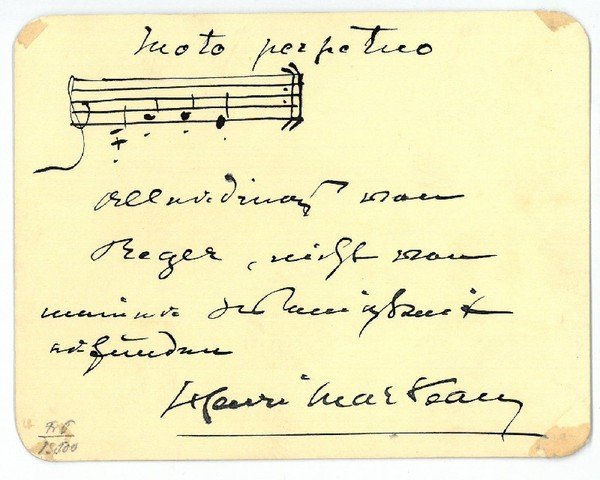 Moto perpetuo
allerdings von
Reger, nicht von
meiner Wenigkeit
erfunden
Henri Marteau